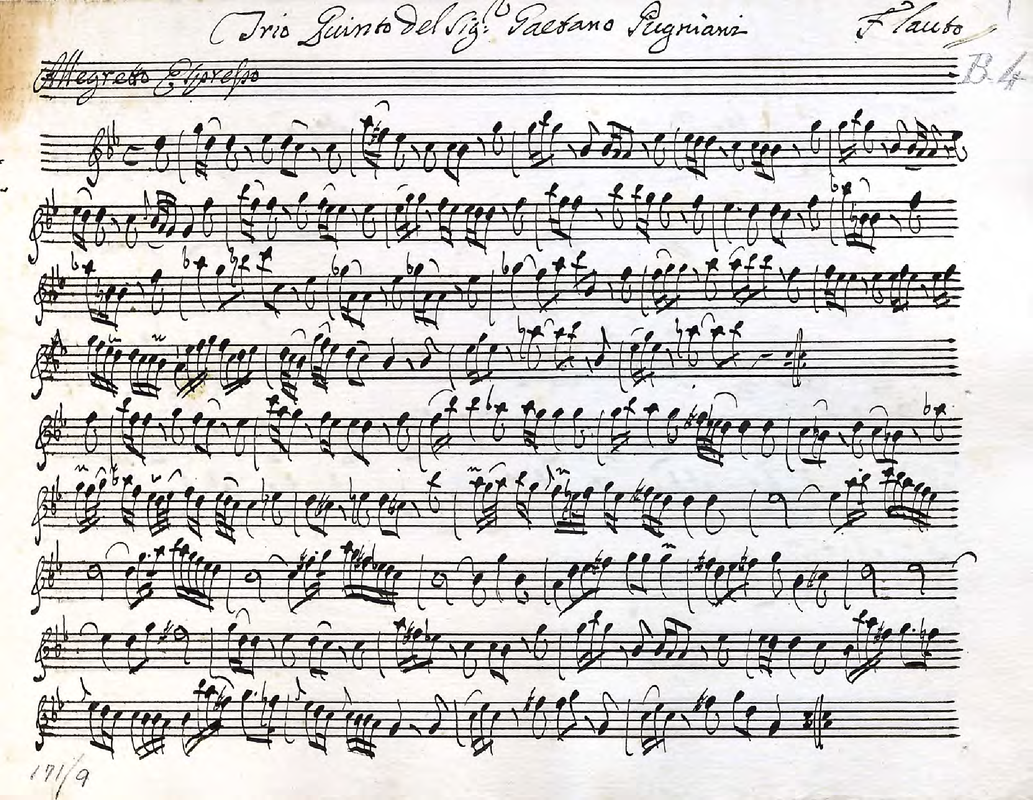 Trio Quinto del Sig.r Gaetano Pugniani Flauto
Allegretto Espressо
B. 4
171/9